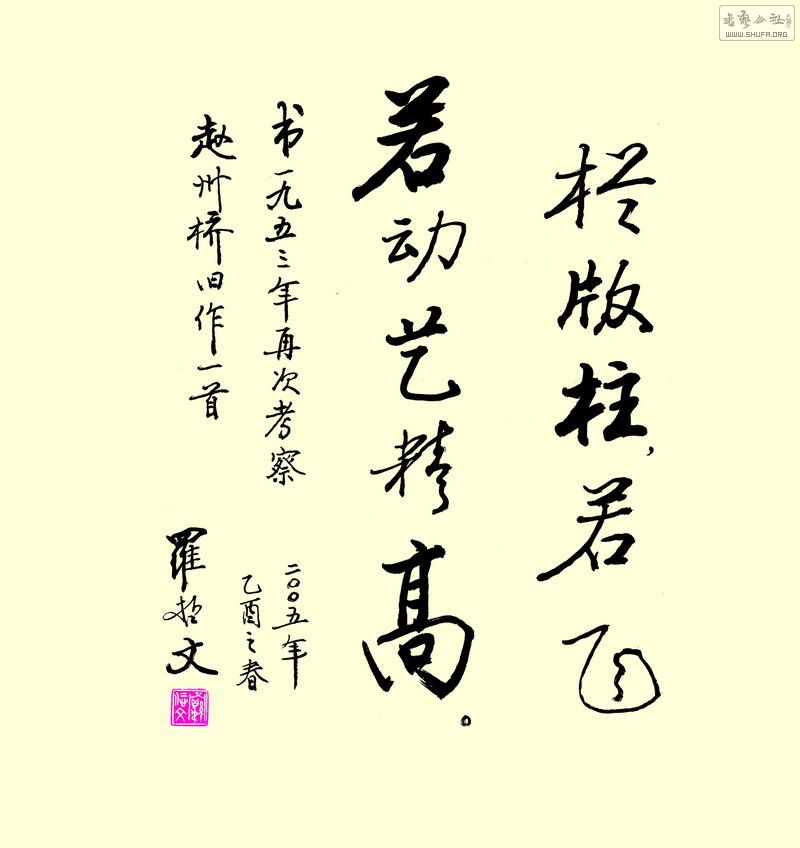 栏版柱,若飞
若动艺精高。
书一九五三年再次考察
赵州桥旧作一首
二〇〇五年
乙酉之春
羅哲文
書藝公社
WWW.SHUFA.ORG